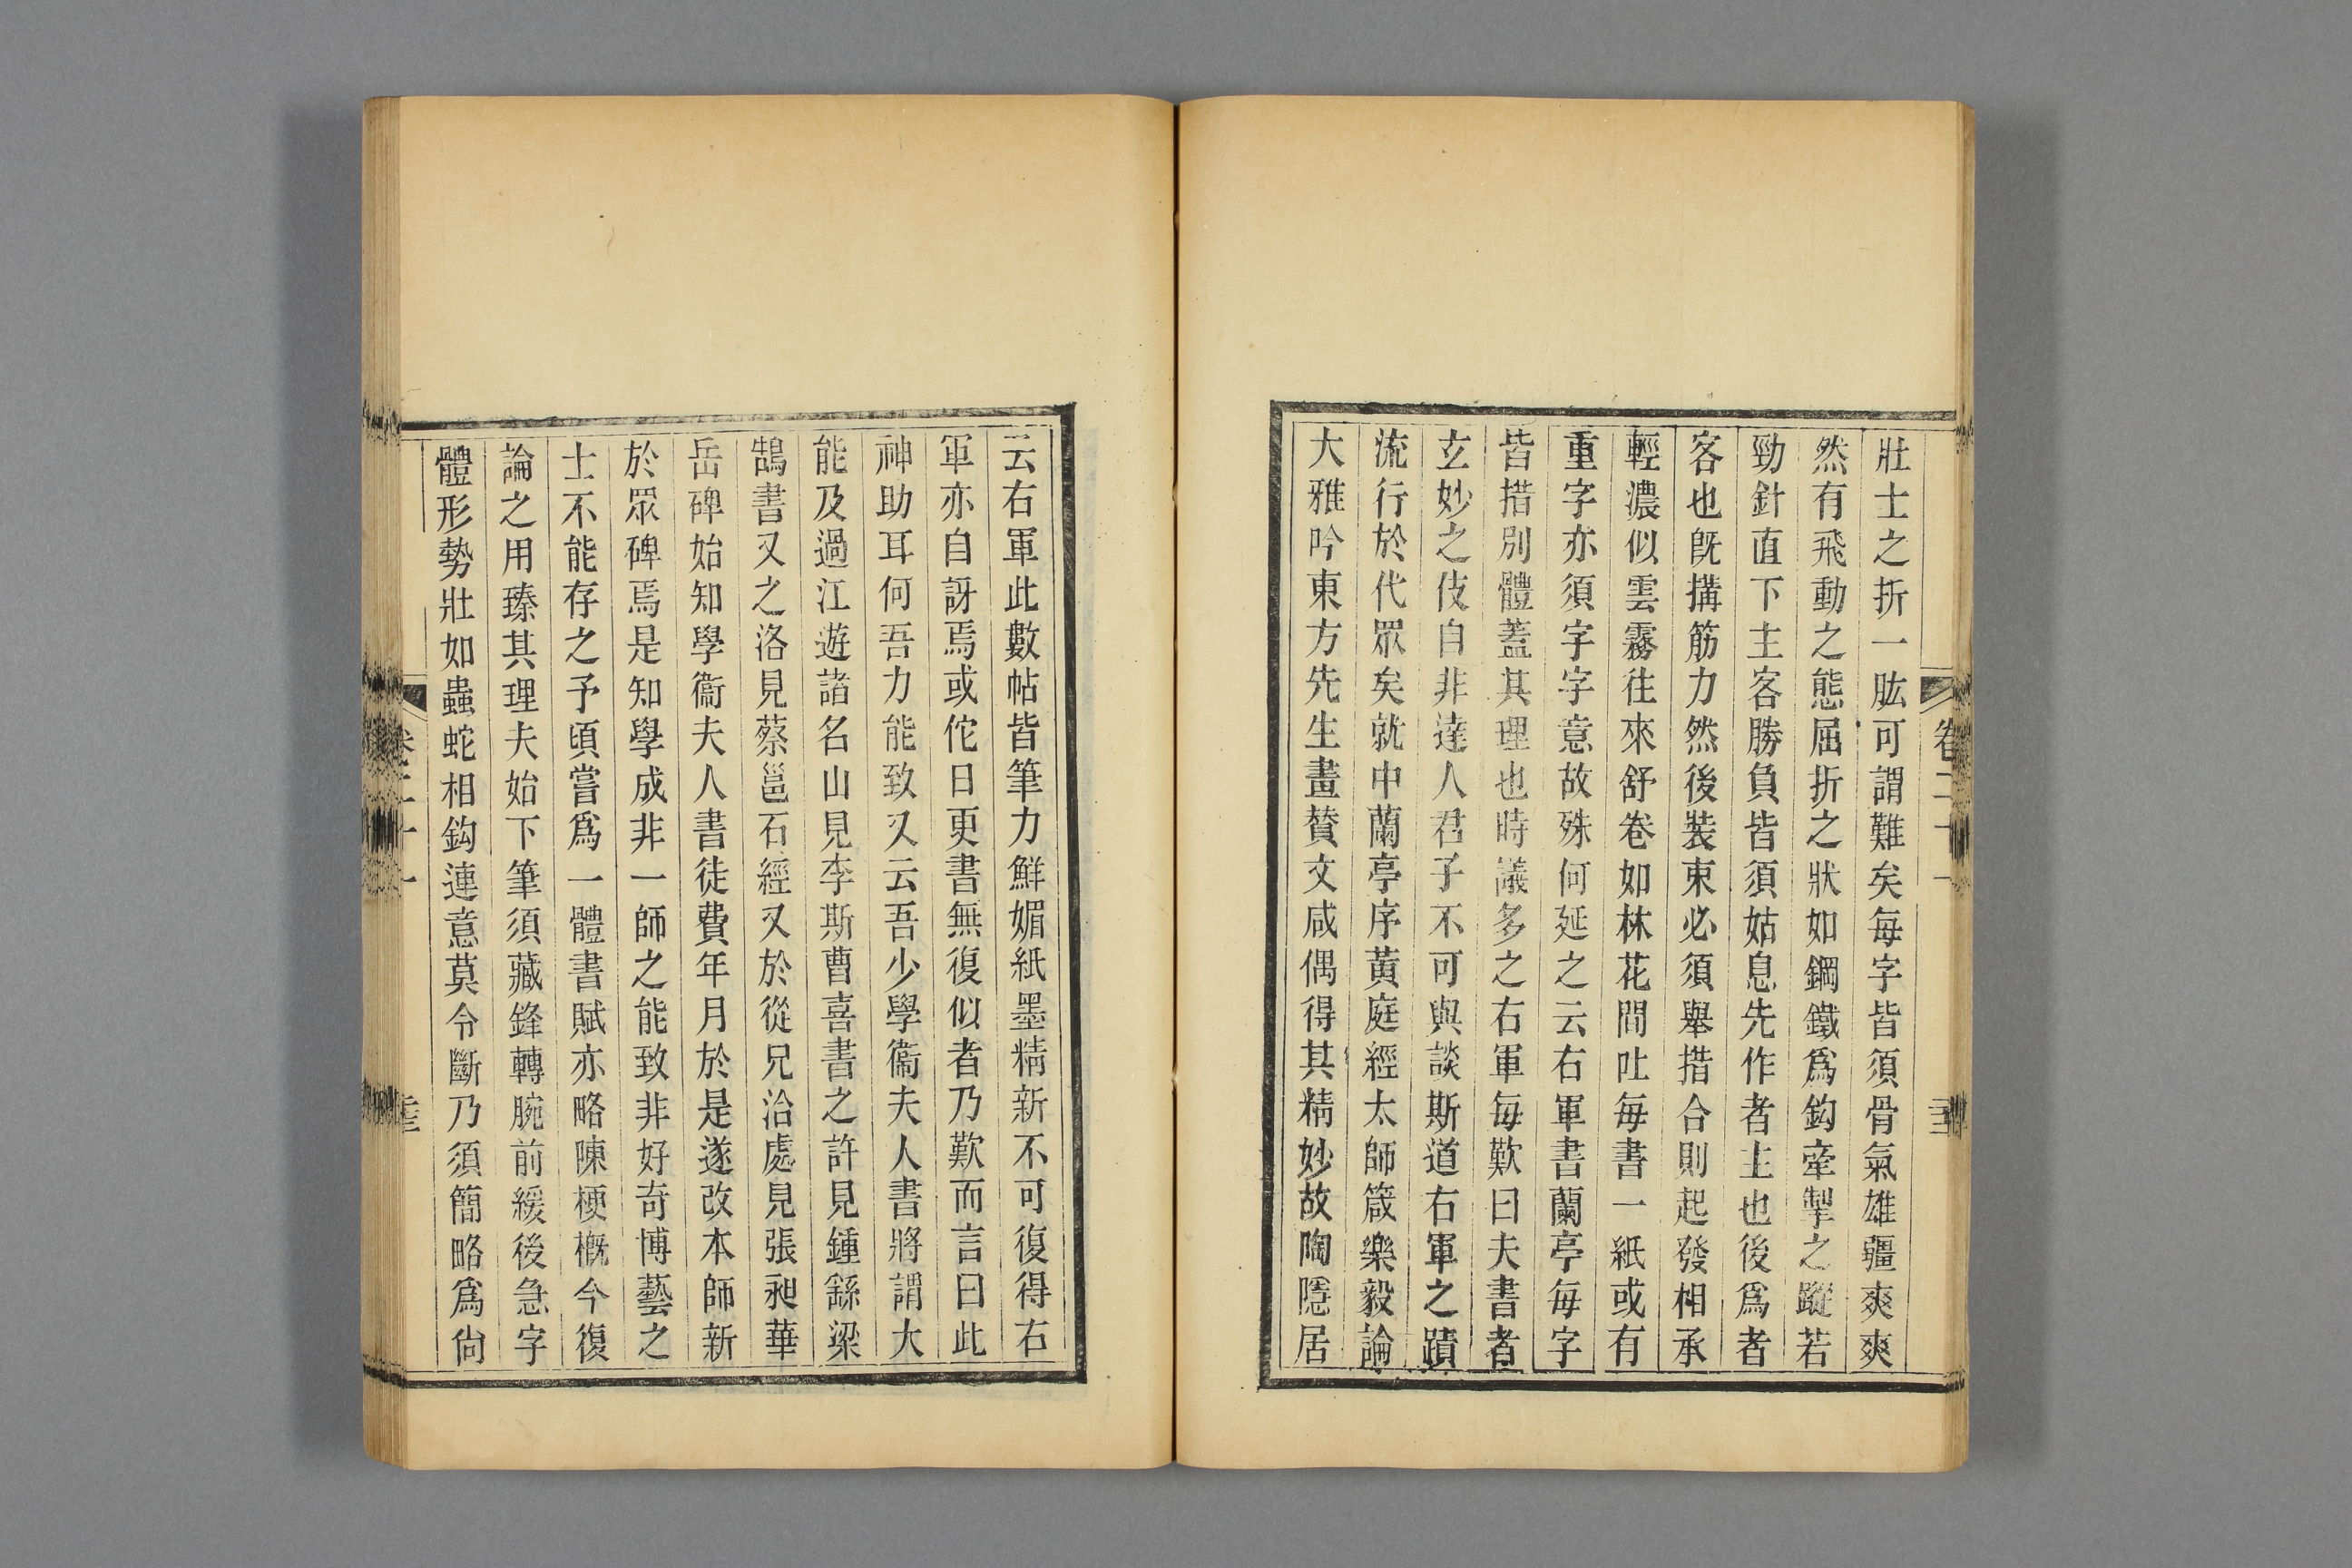 壯士之折一肱可謂難矣每字皆須骨氣雄疆爽爽
然有飛動之態屈折之狀如鋼鐵爲鈎牽掣之蹤若
勁針直下主客勝負皆須姑息先作者主也後爲者
客也旣搆筋力然後裝束必須舉措合則起發相承
輕濃似雲霧往來舒卷如林花間吐每書一紙或有
重字亦須字字意故殊何延之云右軍書蘭亭每字
皆措別體蓋其理也時議多之右軍每歎曰夫書者
玄妙之伎自非達人君子不可與談斯道右軍之蹟
流行於代眾矣就中蘭亭序黃庭經太師箴樂毅論
大雅吟東方先生畫贊文咸偶得其精妙故陶隱居
云右軍此數帖皆筆力鮮媚紙墨精新不可復得右
軍亦自訝焉或佗日更書無復似者乃歎而言曰此
神助耳何吾力能致又云吾少學衞夫人書將謂大
能及過江遊諸名山見李斯曹喜書之許見鍾繇梁
鵠書又之洛見蔡邕石經又於從兄洽處見張昶華
岳碑始知學衞夫人書徒費年月於是遂改本師新
於眾碑焉是知學成非一師之能致非好奇博藝之
士不能存之予頃嘗爲一體書賦亦略陳梗概今復
論之用臻其理夫始下筆須藏鋒轉腕前緩後急字
體形勢壯如蟲蛇相鈎連意莫令斷乃須簡略爲尙